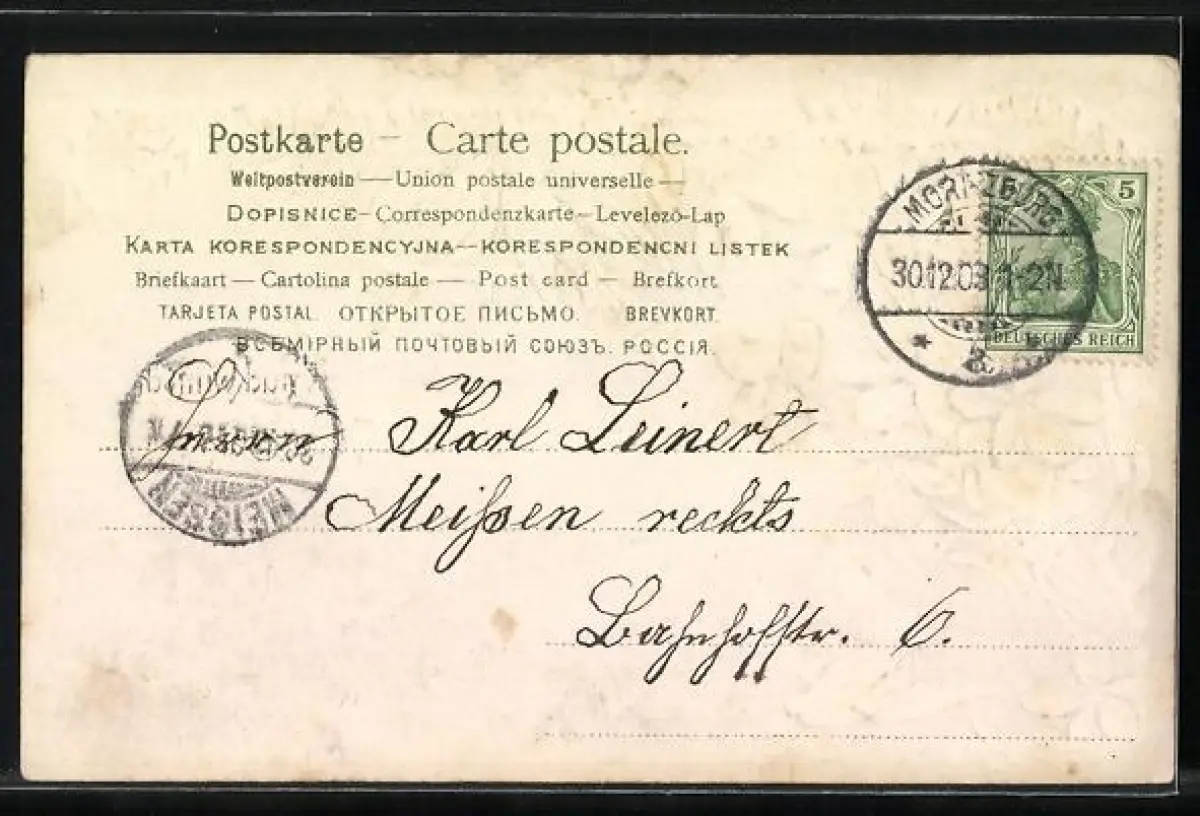 Postkarte – Carte postale.
Weltpostverein — Union postale universelle —
DOPISNICE – Correspondenzkarte – Levelező-Lap
KARTA KORESPONDENCYJNA — KORESPONDENCNI LISTEK
Briefkaart — Cartolina postale — Post card — Brefkort
TARJETA POSTAL. ОТКРЫТОЕ ПИСЬМО. BREVKORT.
ВСЕМІРНЫЙ ПОЧТОВЫЙ СОЮЗЪ. РОССІЯ.
MORITZBURG
30.12.03. 1-2N.
* 2.
5
DEUTSCHES REICH
MEISSEN
Karl Leinert
Meißen rechts
Bahnhofstr. 6.